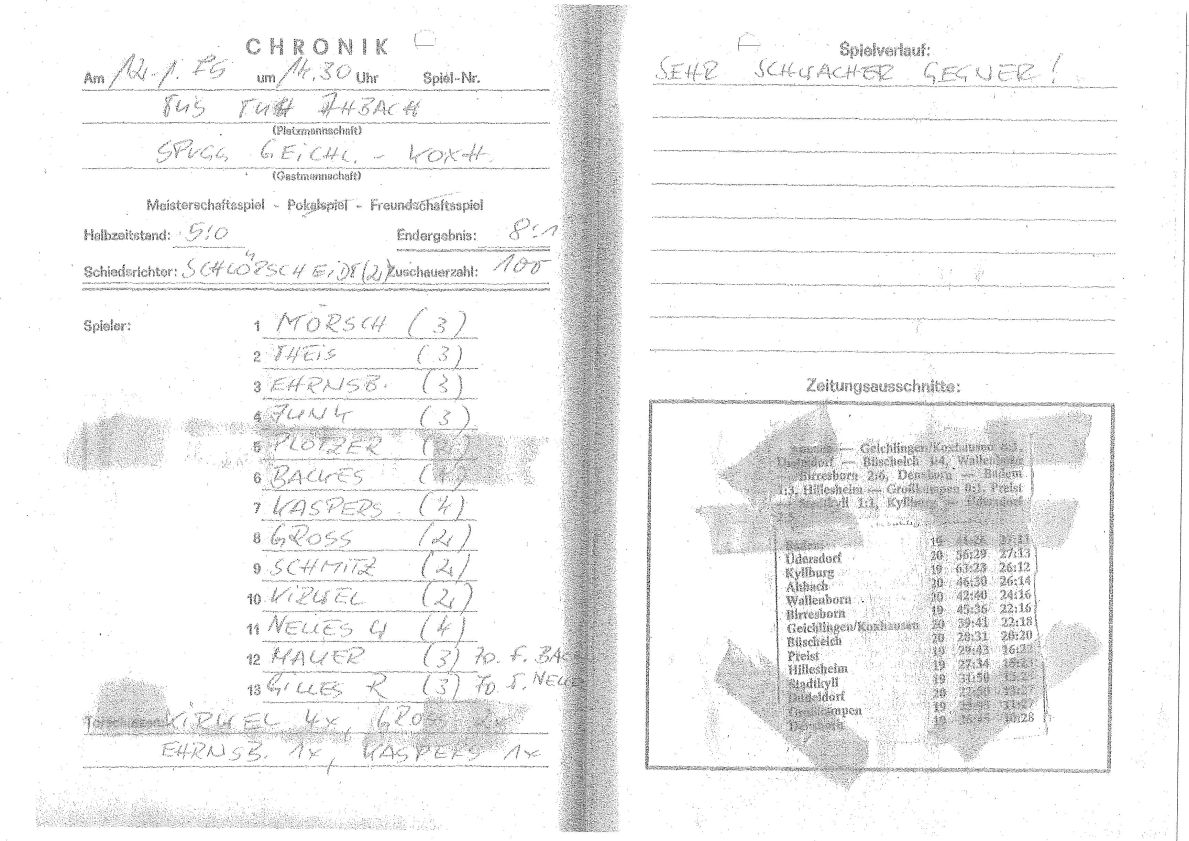 CHRONIK
Am 12.1.75 um 14.30 Uhr Spiel-Nr.
TuS AHBACH
(Platzmannschaft)
SPVGG GEICHL. - KOXH.
(Gastmannschaft)
Meisterschaftsspiel - Pokalspiel - Freundschaftsspiel
Halbzeitstand: 5:0 Endergebnis: 8:1
Schiedsrichter: Zuschauerzahl: 100
Spieler: 1 MÖRSCH (3)
2 THEIS (3)
3 EHRNSB. (3)
4 JUNK (3)
5 PLÖTZER
6 BACKES
7 KASPERS (4)
8 GROSS (2)
9 SCHMITZ (2)
10 KIRWEL (2)
11 NELLES U (4)
12 MAUER (3) 70. F. BACK
13 GILLES R (3) 70. F. NELLE
Torschützen KIRWEL 4x, GROSS 2x
EHRNSB. 1x, KASPERS 1x
Spielverlauf:
SEHR SCHWACHER GEGNER!
Zeitungsausschnitte:
— Geichlingen/Koxhausen 8:1,
Dudeldorf — Büscheich 1:4, Wallenborn
— Birresborn 2:6, Densborn —
1:3, Hillesheim — Großkampen 0:1, Preist
— Stadtkyll 1:1, Kyllburg — Üdersdorf
19
Üdersdorf 20 56:29 27:13
Kyllburg 19 63:23 26:12
Ahbach 20 46:30 26:14
Wallenborn 20 42:40 24:16
Birresborn 19 45:36 22:16
Geichlingen/Koxhausen 20 39:41 22:18
Büscheich 20 28:31 20:20
Preist 19 29:43 16:22
Hillesheim 19 27:34
Stadtkyll 19 31:50
Dudeldorf 20
Großkampen 19
Densborn 19 10:28